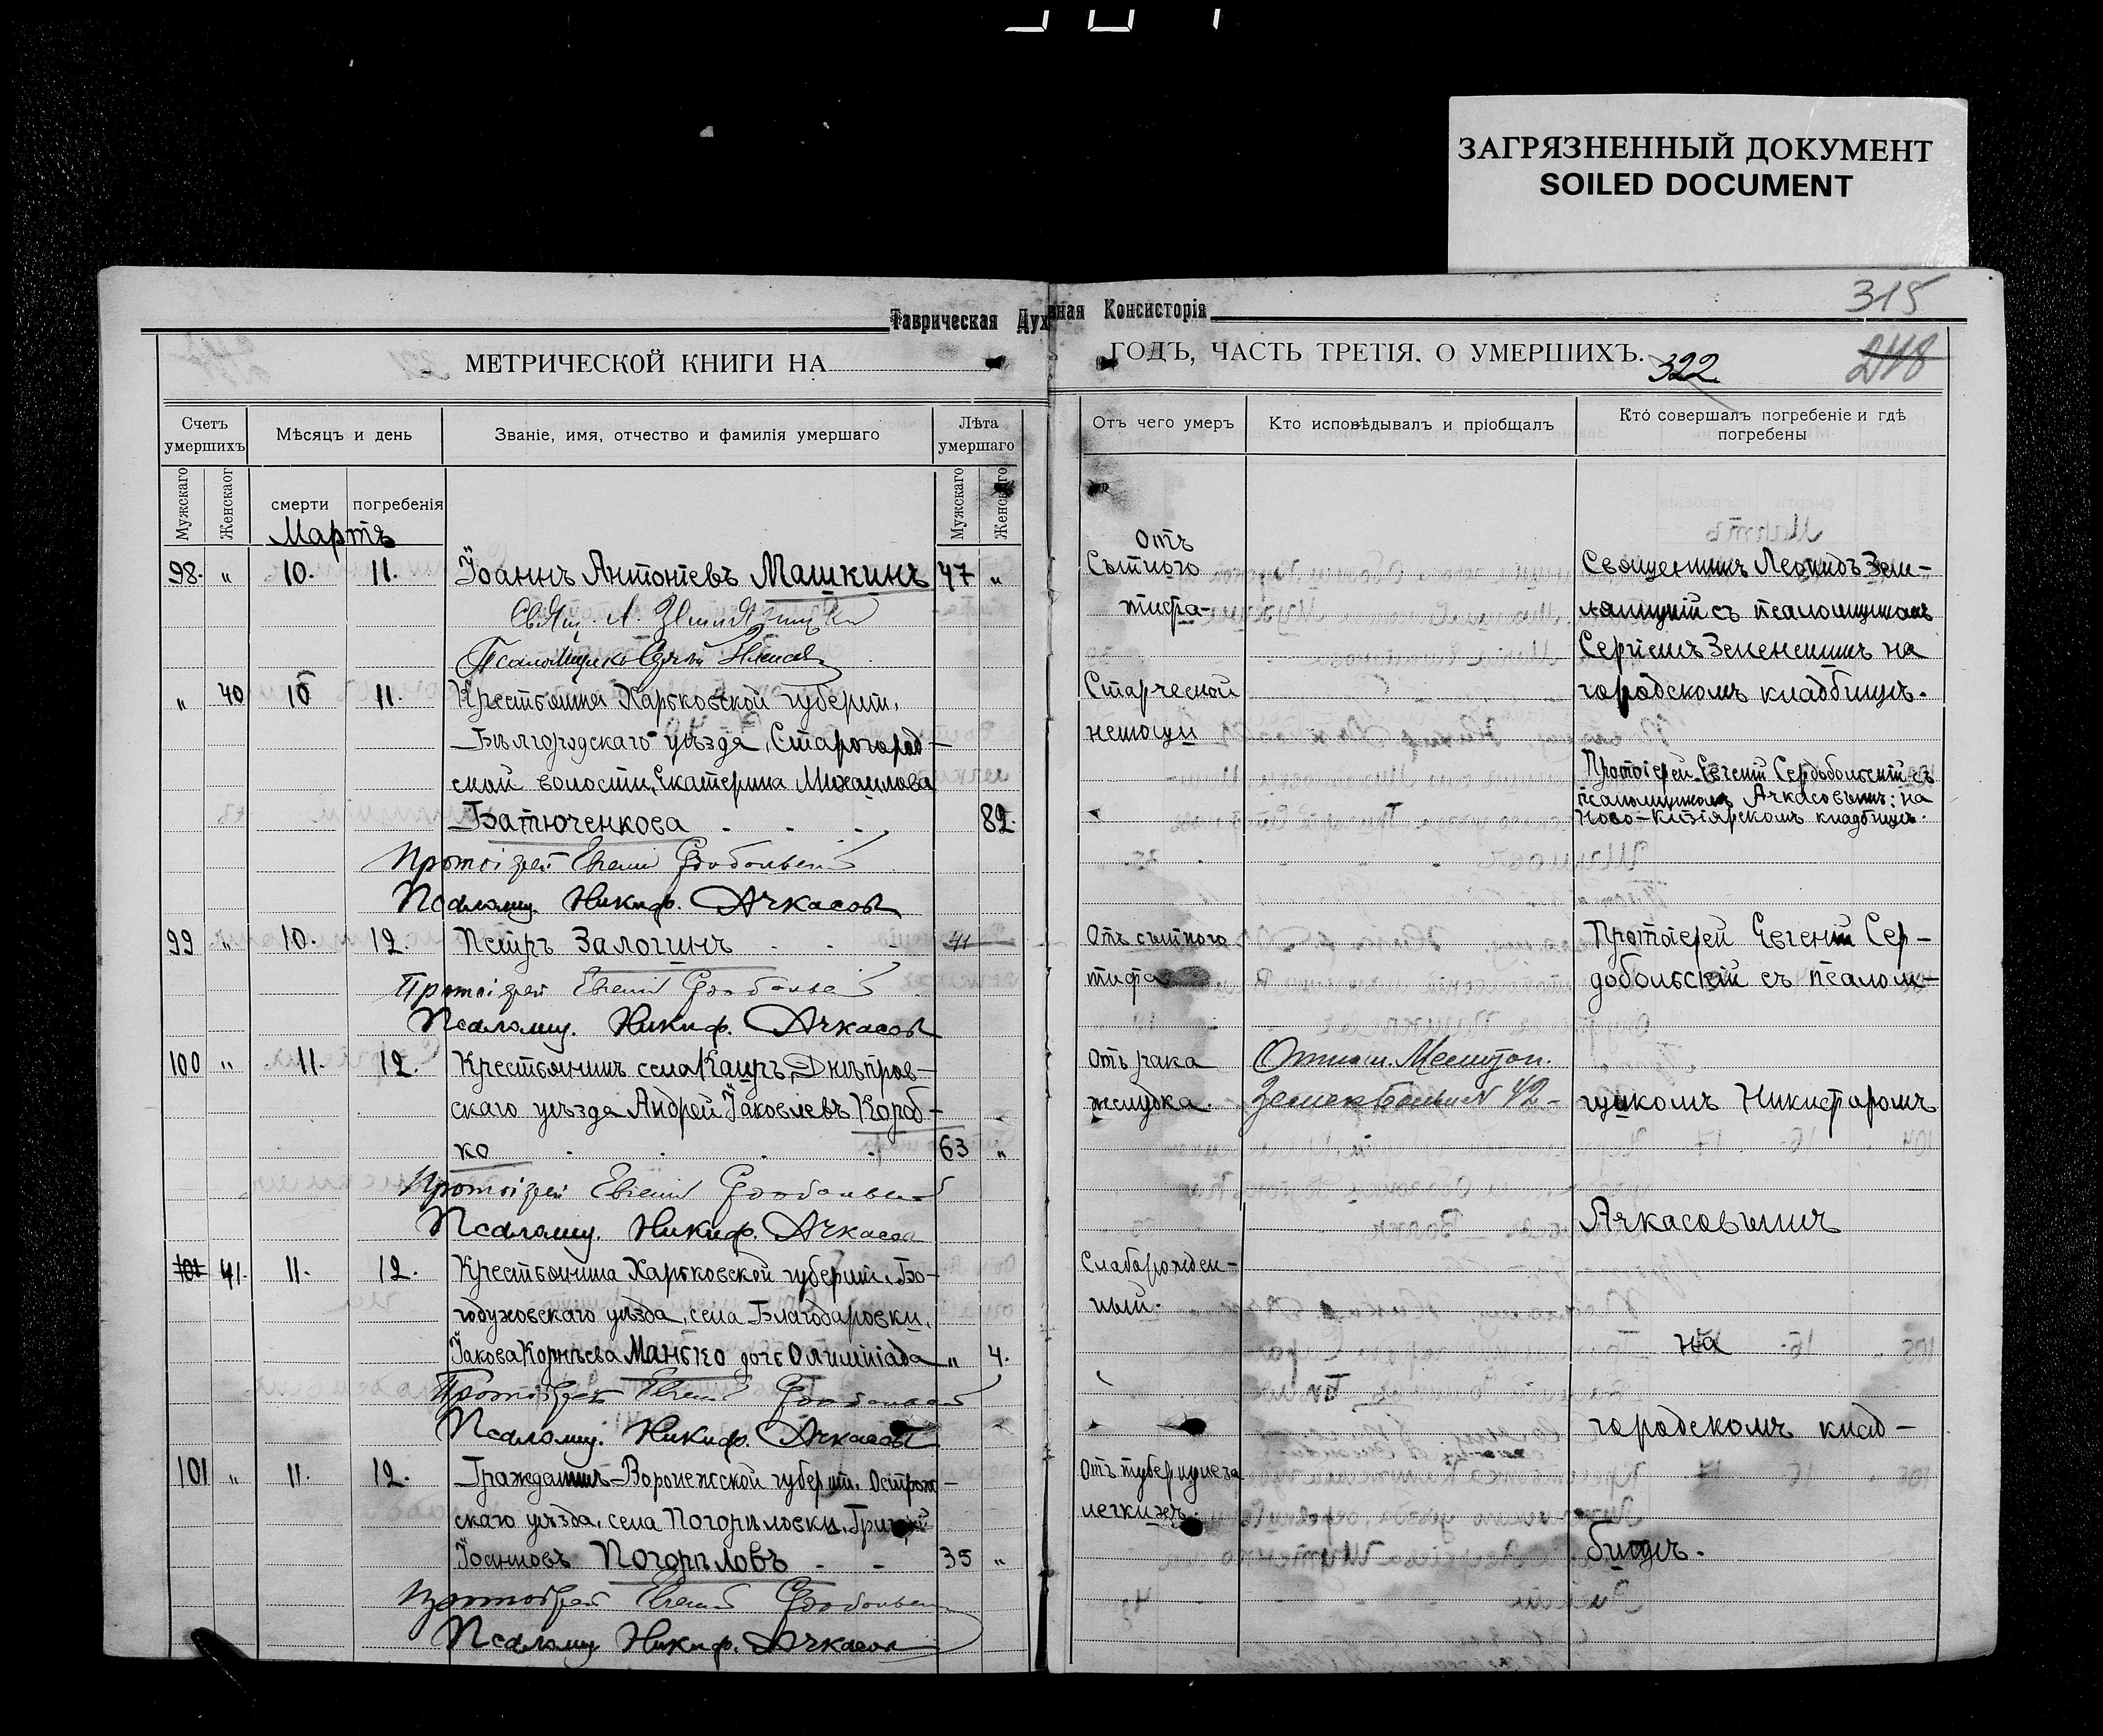 ЗАГРЯЗНЕННЫЙ ДОКУМЕНТ
SOILED DOCUMENT
315
Таврическая Духовная Консисторія
МЕТРИЧЕСКОЙ КНИГИ НА ГОДЪ, ЧАСТЬ ТРЕТІЯ. О УМЕРШИХЪ.
322
248
Счетъ умершихъ
Мѣсяцъ и день
Званіе, имя, отчество и фамилія умершаго
Лѣта умершаго
Отъ чего умеръ
Кто исповѣдывалъ и пріобщалъ
Кто совершалъ погребеніе и гдѣ погребены
Мужскаго
Женскаог
смерти
погребенія
Мужскаго
Женскаго
Мартъ
98. " 10. 11. Іоаннъ Антоніевъ Машкинъ 47 "
Свящ. Л.
Псаломщикъ Сергій
" 40 10 11. Крестьянка Харьковской губерніи,
Бѣлгородскаго уѣзда, Старогород-
ской волости, Екатерина Михаилова
Батюченкова 82.
Протоіерей Евгеній Сердобольскій
Псаломщ. Никиф. Ачкасовъ
99 " 10. 12. Петръ Залогинъ 41
Протоіерей Евгеній Сердобольскій
Псаломщ. Никиф. Ачкасовъ
100 " 11. 12. Крестьянинъ села Каиръ, Днѣпров-
скаго уѣзда Андрей Іаковлевъ Короб-
ко 63 "
Протоіерей Евгеній Сердобольскій
Псаломщ. Никиф. Ачкасовъ
101 41. 11. 12. Крестьянина Харьковской губерніи, Бо-
годуховскаго уѣзда, села Благодаровки,
Іакова Корнѣева Манько дочь Олимпіада " 4.
Протоіерей Евгеній Сердобольскій
Псаломщ. Никиф. Ачкасовъ
101 " 11. 12. Гражданинъ Воронежской губерніи, Острож-
скаго уѣзда, села Погорѣловки, Григорій
Іоанновъ Погорѣловъ 35 "
Протоіерей Евгеній Сердобольскій
Псаломщ. Никиф. Ачкасовъ
Отъ
Сыпного
тифа
Старческой
немощи
Отъ сыпного
тифа
Отъ рака
желудка.
Слаборожден-
ный.
Отъ туберкулеза
легкихъ.
Отнош.
№ 42
Священникъ Леонидъ Зем-
съ псаломщикомъ
Сергіемъ на
городскомъ кладбищѣ.
Протоіерей Евгеній Сердобольскій съ
псаломщикомъ Ачкасовымъ; на
Ново-Кизіярскомъ кладбищѣ.
Протоіерей Евгеній Сер-
добольскій съ псалом-
щикомъ Никифоромъ
Ачкасовымъ
на
городскомъ клад-
бищѣ.